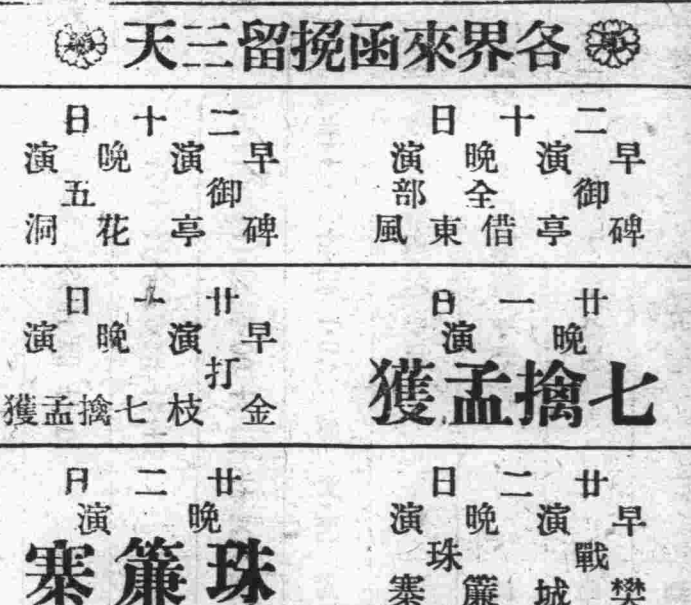 各界來函挽留三天
二十日
早演
御碑亭
晚演
全部借東風
二十日
早演
御碑亭
晚演
五花洞
廿一日
晚演
七擒孟獲
廿一日
早演
打金枝
晚演
七擒孟獲
廿二日
早演
戰樊城
晚演
珠簾寨
廿二日
晚演
珠簾寨